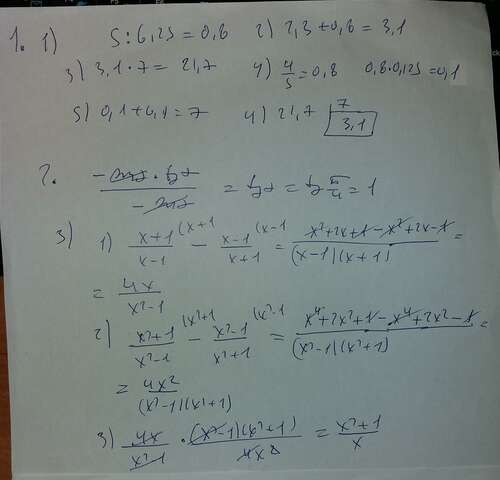 1. 1) 5:6,25 = 0,8 2) 2,3+0,8 = 3,1
3) 3,1·7 = 21,7 4) 4/5 = 0,8 0,8·0,125 = 0,1
5) 0,1+6,9 = 7 4) 21,7 | 7
3,1
2. -cosα·tgα / -cosα = tgα = tg π/4 = 1
3) 1) x+1/x-1 (x+1 - x-1/x+1 (x-1 = x²+2x+1-x²+2x-1/(x-1)(x+1) =
= 4x/x²-1
2) x²+1/x²-1 (x²+1 - x²-1/x²+1 (x²-1 = x⁴+2x²+1-x⁴+2x²-1/(x²-1)(x²+1) =
= 4x²/(x²-1)(x²+1)
3) 4x/x²-1 · (x²-1)(x²+1)/4x² = x²+1/x